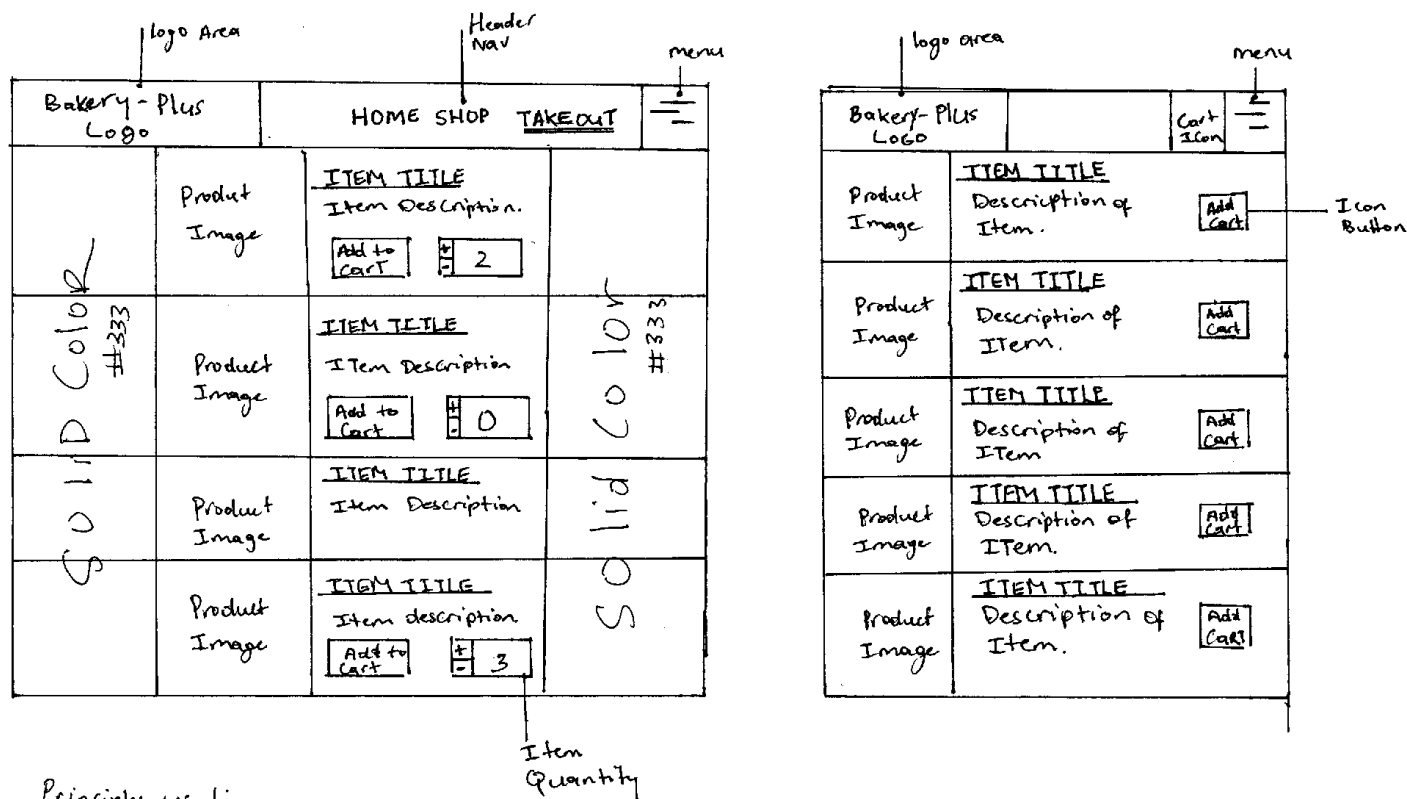 logo Area
Header
Nav
menu
Bakery-Plus
Logo
HOME SHOP TAKEOUT
SOlID Color
#333
Product
Image
ITEM TITLE
Item Description.
Add to
Cart
+
-
2
Product
Image
ITEM TITLE
ITem Description
Add to
Cart
+
-
0
Product
Image
ITEM TITLE
Item Description
Product
Image
ITEM TITLE
Item description
Add to
Cart
+
-
3
Solid Color
#333
Item
Quantity
logo area
menu
Bakery-Plus
LOGO
Cart
Icon
Product
Image
ITEM TITLE
Descricption of
Item.
Add
Cart
Icon
Button
Product
Image
ITEM TITLE
Description of
ITem.
Add
Cart
Product
Image
ITEM TITLE
Description of
ITem
Add
Cart
Product
Image
ITEM TITLE
Description of
ITem.
Add
Cart
Product
Image
ITEM TITLE
Description of
Item.
Add
CART